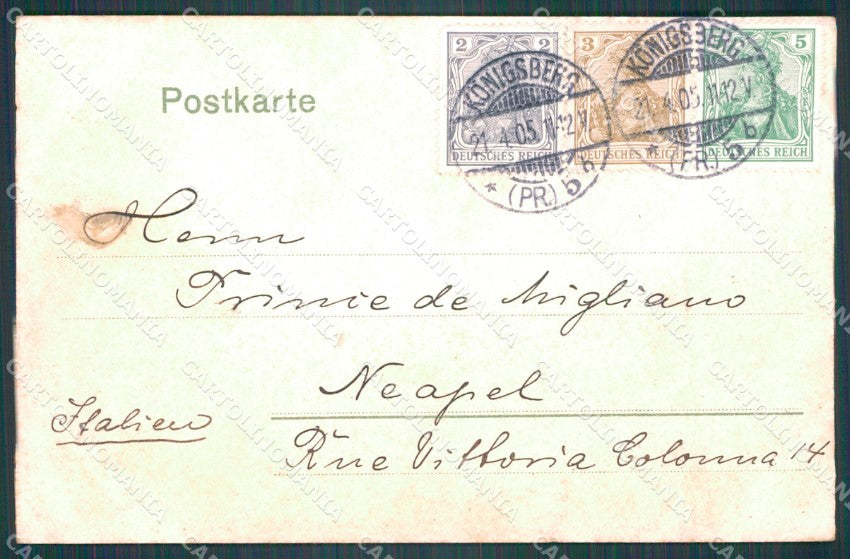 Postkarte
2 2
DEUTSCHES REICH
3
DEUTSCHES REICH
5
DEUTSCHES REICH
KÖNIGSBERG
21.4.05.11-12V.
* (PR.) 5 b
KÖNIGSBERG
21.4.05.11-12V.
* (PR.) 5 b
Herrn
Prince de Migliano
Neapel
Italien
Rue Vittoria Colonna 14
CARTOLINOMANIA